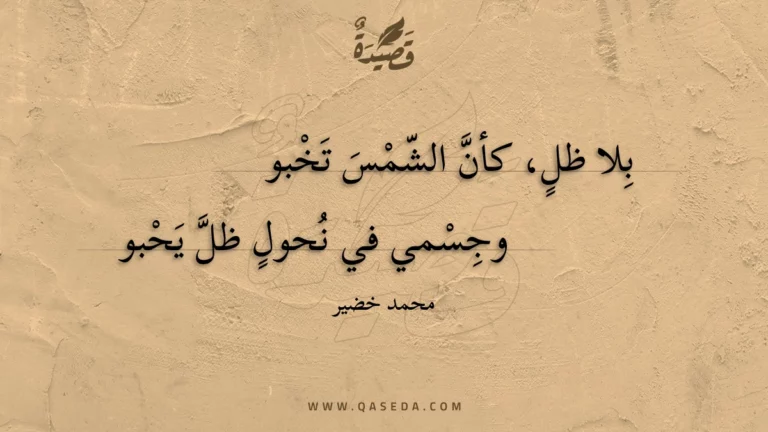 قَصِيْدَةٌ
بِلا ظلٍ، كأنَّ الشّمْسَ تَخْبو
وجِسْمي في نُحولٍ ظلَّ يَحْبو
محمد خضير
WWW.QASEDA.COM